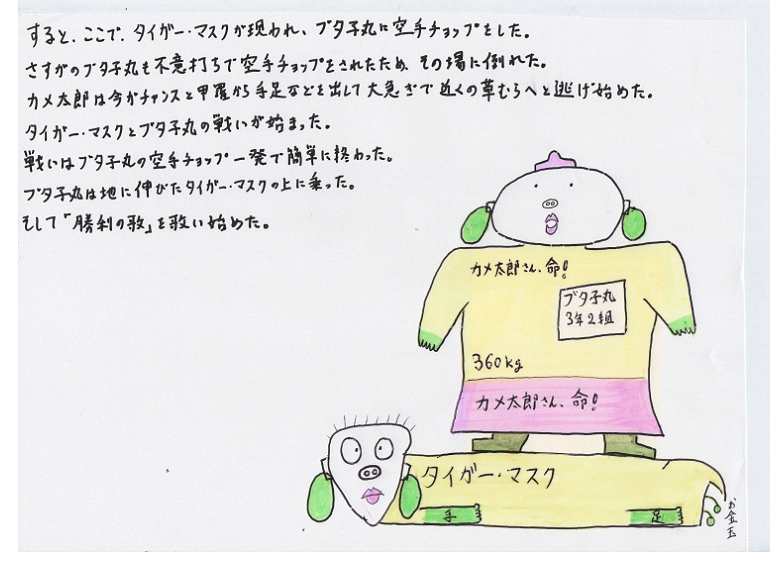 すると、ここで、タイガー・マスクが現われ、ブタ子丸に空手チョップをした。
さすがのブタ子丸も不意打ちで空手チョップをされたため、その場に倒れた。
カメ太郎は今がチャンスと甲羅から手足などを出して大急ぎで近くの草むらへと逃げ始めた。
タイガー・マスクとブタ子丸の戦いが始まった。
戦いはブタ子丸の空手チョップ一発で簡単に終わった。
ブタ子丸は地に伸びたタイガー・マスクの上に乗った。
そして「勝利の歌」を歌い始めた。
カメ太郎さん、命!
ブタ子丸
3年2組
360kg
カメ太郎さん、命!
タイガー・マスク
手
足
お金玉